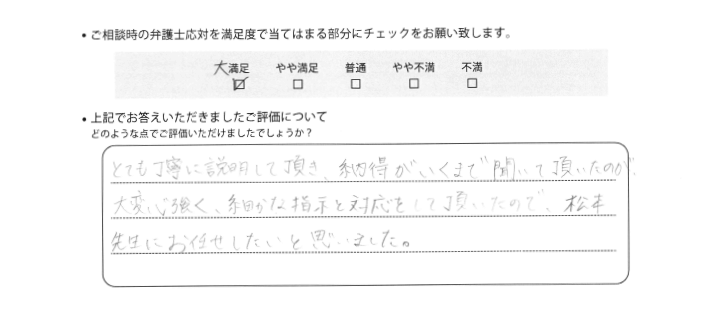 • ご相談時の弁護士応対を満足度で当てはまる部分にチェックをお願い致します。
大満足 やや満足 普通 やや不満 不満
☑ □ □ □ □
• 上記でお答えいただきましたご評価について
どのような点でご評価いただけましたでしょうか？
とても丁寧に説明して頂き、納得がいくまで聞いて頂いたのが、
大変心強く、細かな指示と対応をして頂いたので、松本
先生にお任せしたいと思いました。